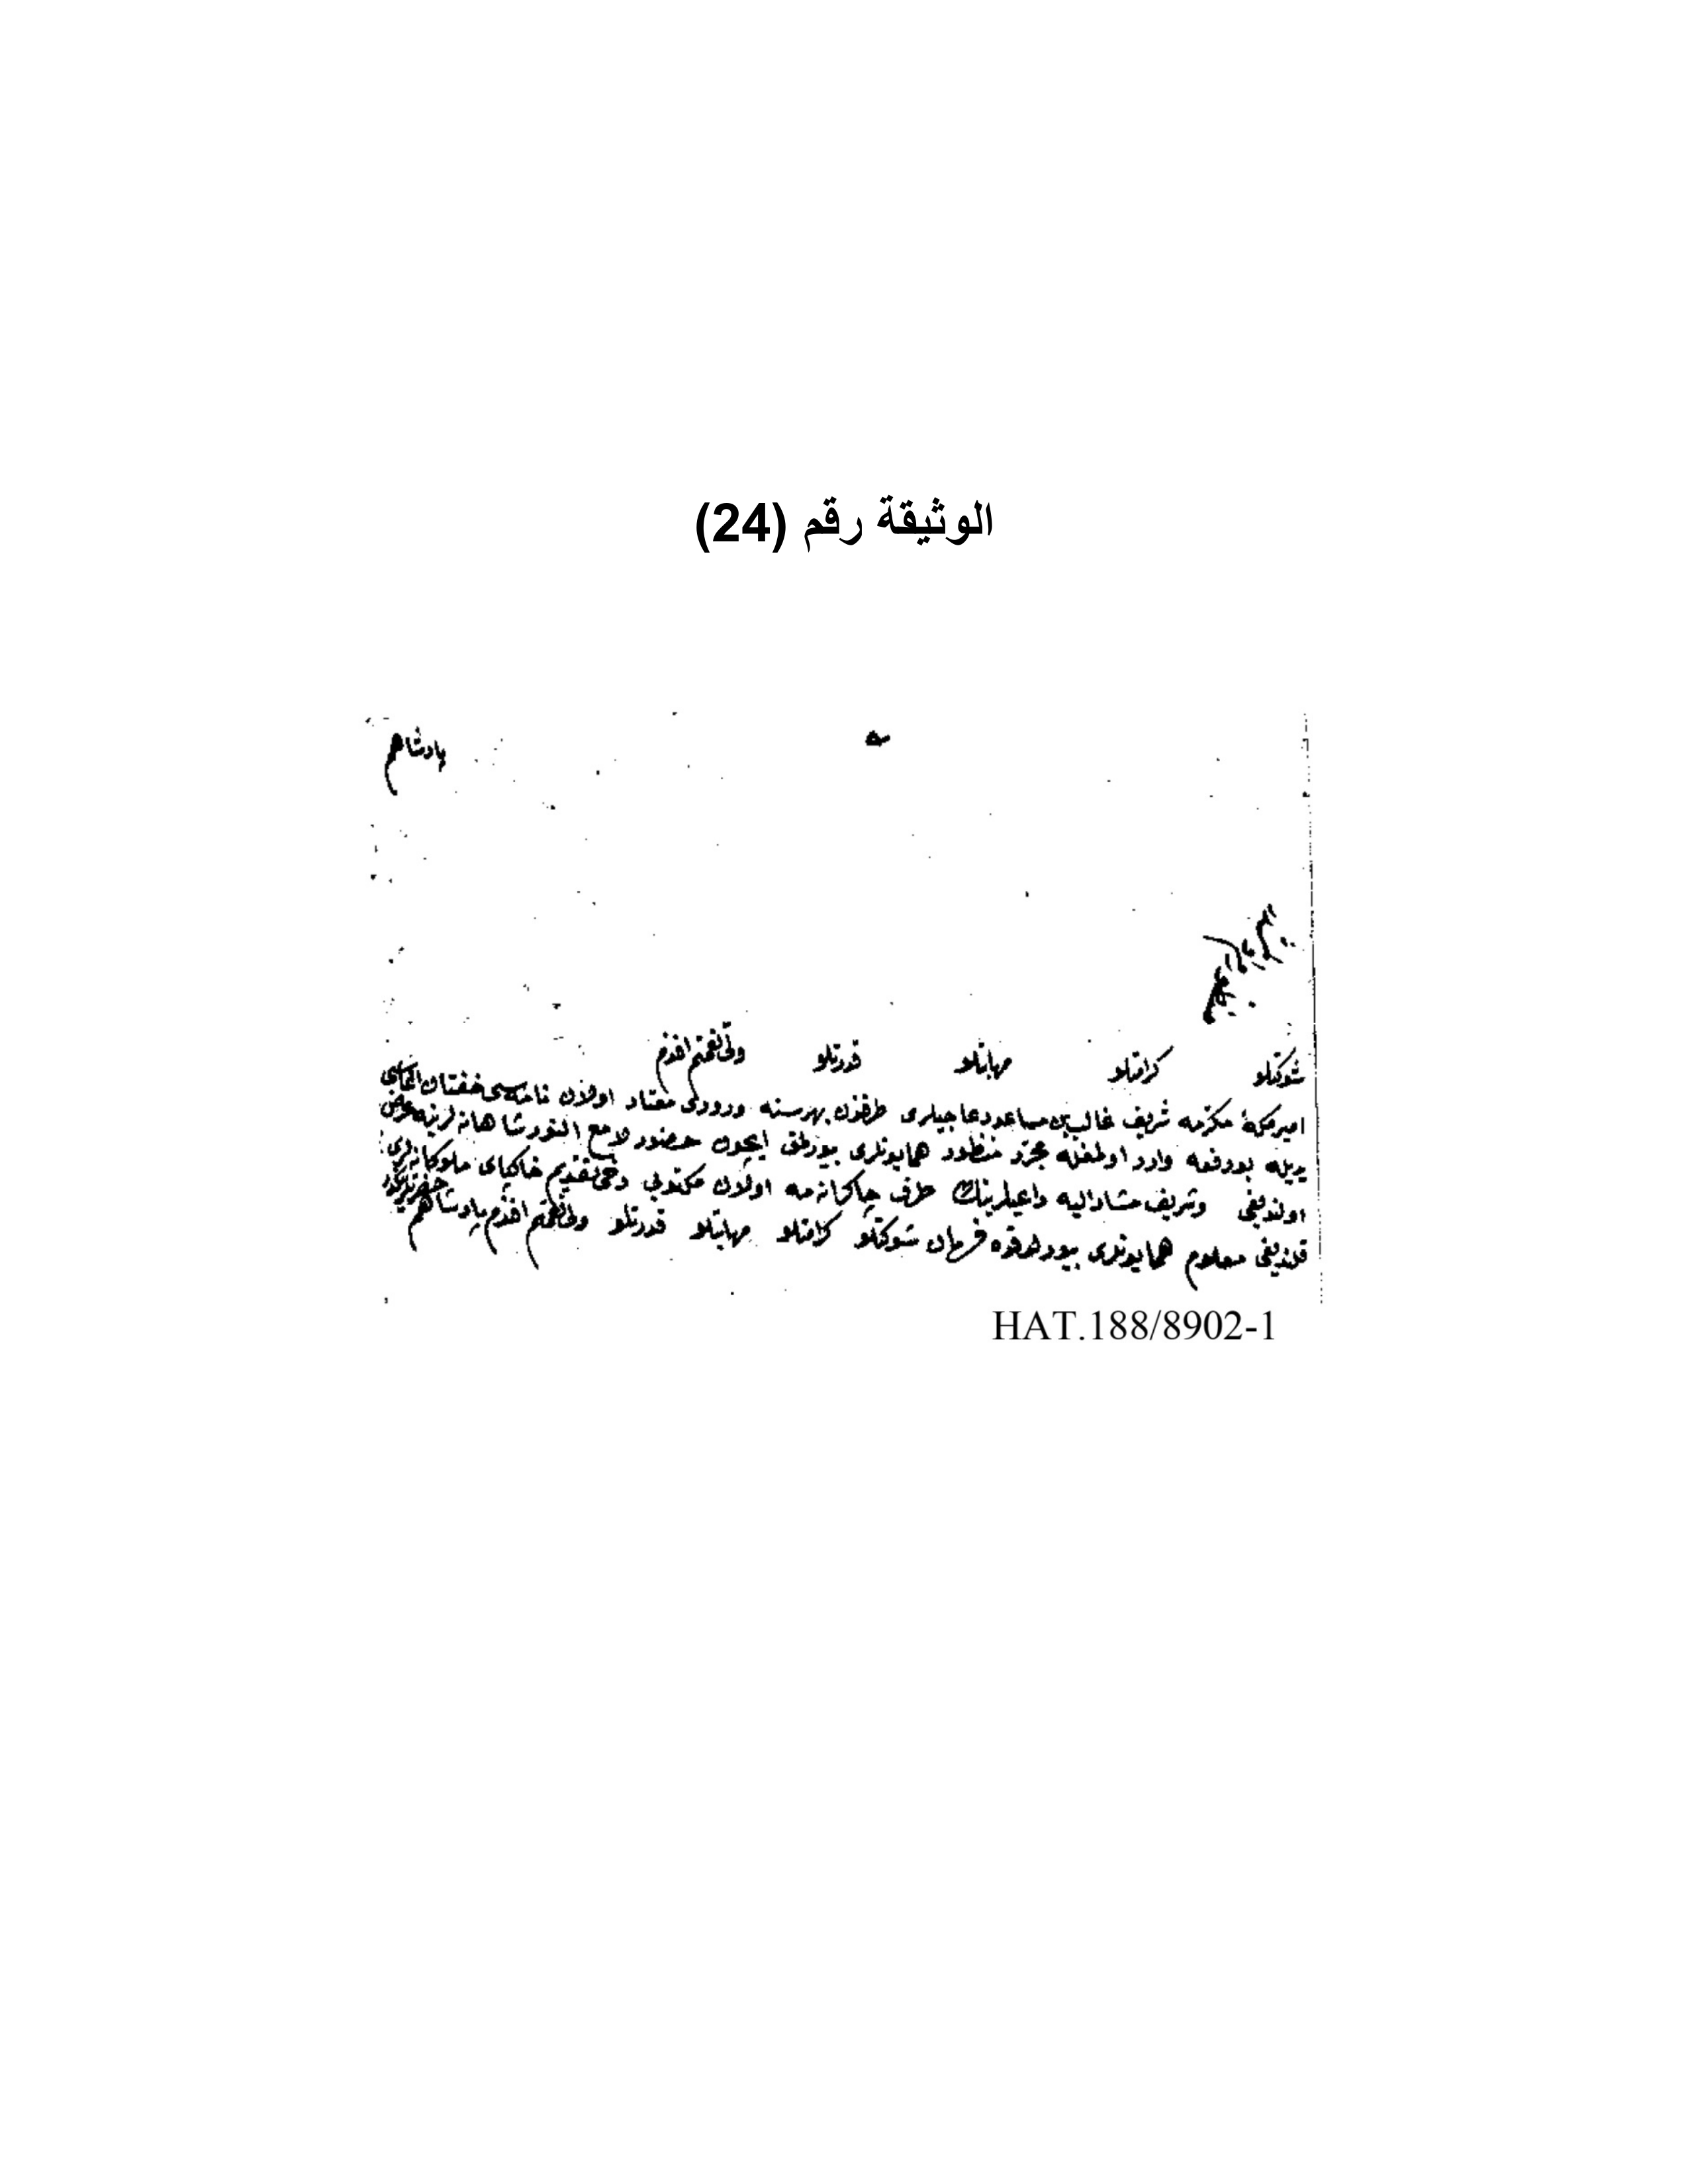 الوثيقة رقم (24)
پادشاهم
شوكتلو كرامتلو مهابتلو قدرتلو ولی نعمتم افندم
امیر مكۀ مكرمه شریف غالب بن مساعد دعاجیلری طرفندن بهرسنه ورودی معتاد اولان نامه سی خفتان اغاسی
یدیله بو دفعه وارد اولمغله مجرد منظور همایونلری بیورلمق ایچون حضور لامع النور شاهانه لرینه عرض
اولندیغی وشریف مشارالیه داعیلرینك طرف چاكرانه مه اولان مكتوبی دخی تقدیم خاكپای ملوكانه لری
قلندیغی معلوم همایونلری بیورلدقده فرمان شوكتلو كرامتلو مهابتلو قدرتلو ولی نعمتم افندم پادشاهم حضرتلرینكدر
HAT.188/8902-1